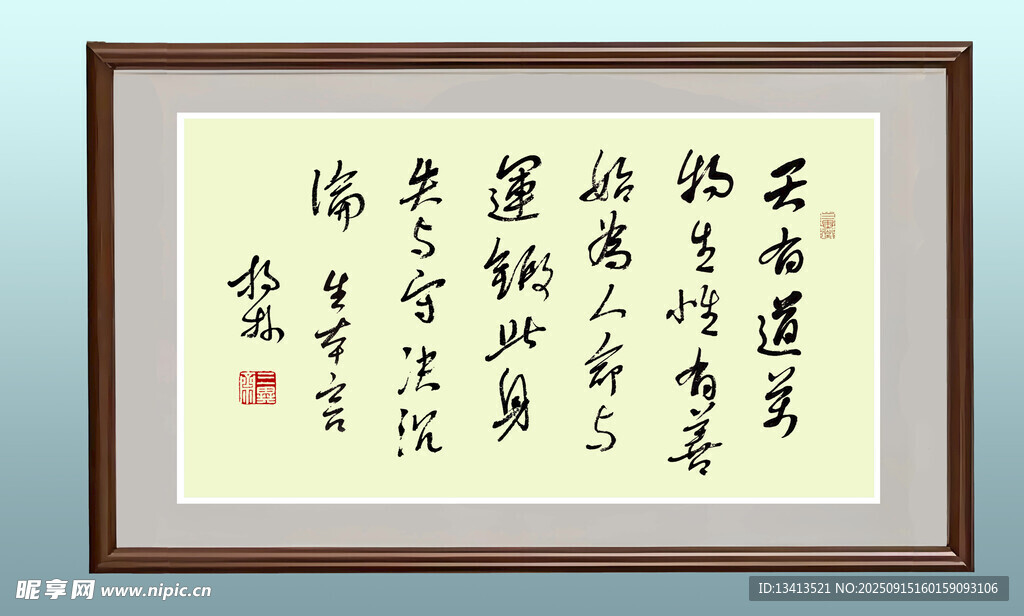 天有道萬
物生性有善
始為人命与
運鍛此身
失与守决沉
淪 生本言
昵享网 www.nipic.cn
ID:13413521 NO:20250915160159093106